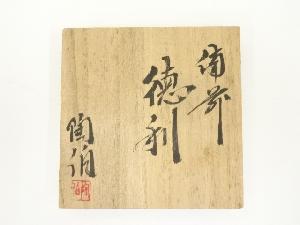 備前
徳利
陶伯